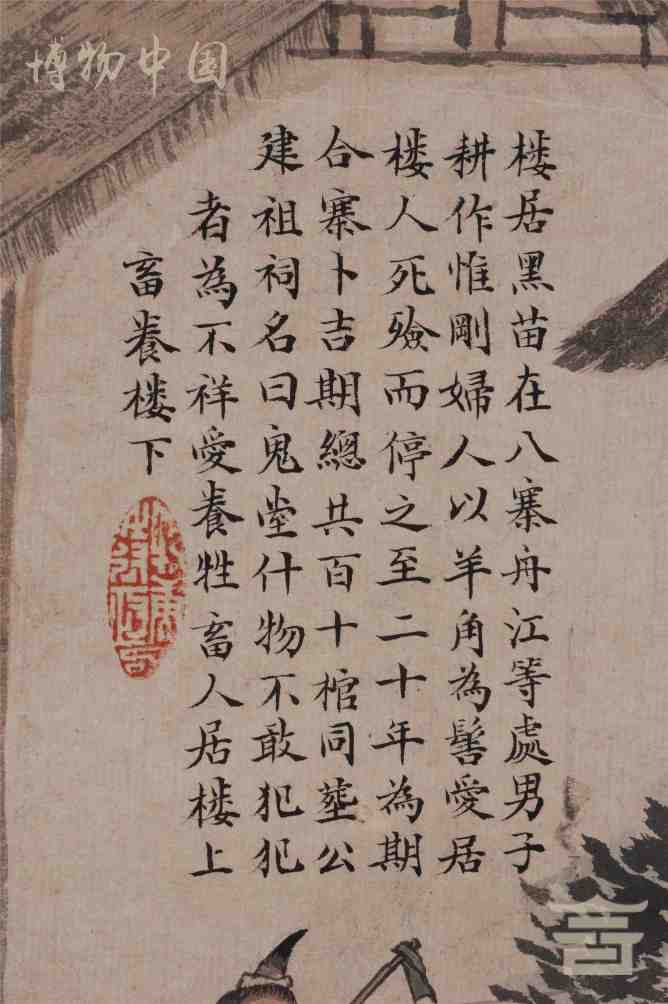 博物中国
楼居黑苗在八寨舟江等處男子
耕作惟剛婦人以羊角為髻愛居
楼人死殮而停之至二十年為期
合寨卜吉期總共百十棺同塟公
建祖祠名曰鬼堂什物不敢犯犯
者為不祥愛養牲畜人居楼上
畜養楼下